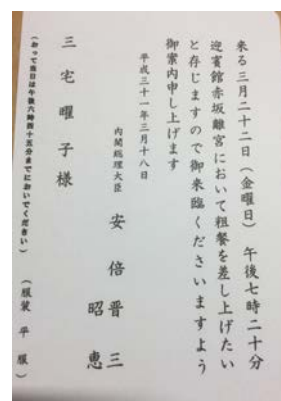 来る三月二十二日（金曜日） 午後七時二十分
迎賓館赤坂離宮において粗餐を差し上げたい
と存じますので御来臨くださいますよう
御案内申し上げます
平成三十一年三月十八日
内閣総理大臣 安倍晋三
昭恵
三宅曜子様
（おって当日は午後六時四十五分までにおいでください） （服装 平服）